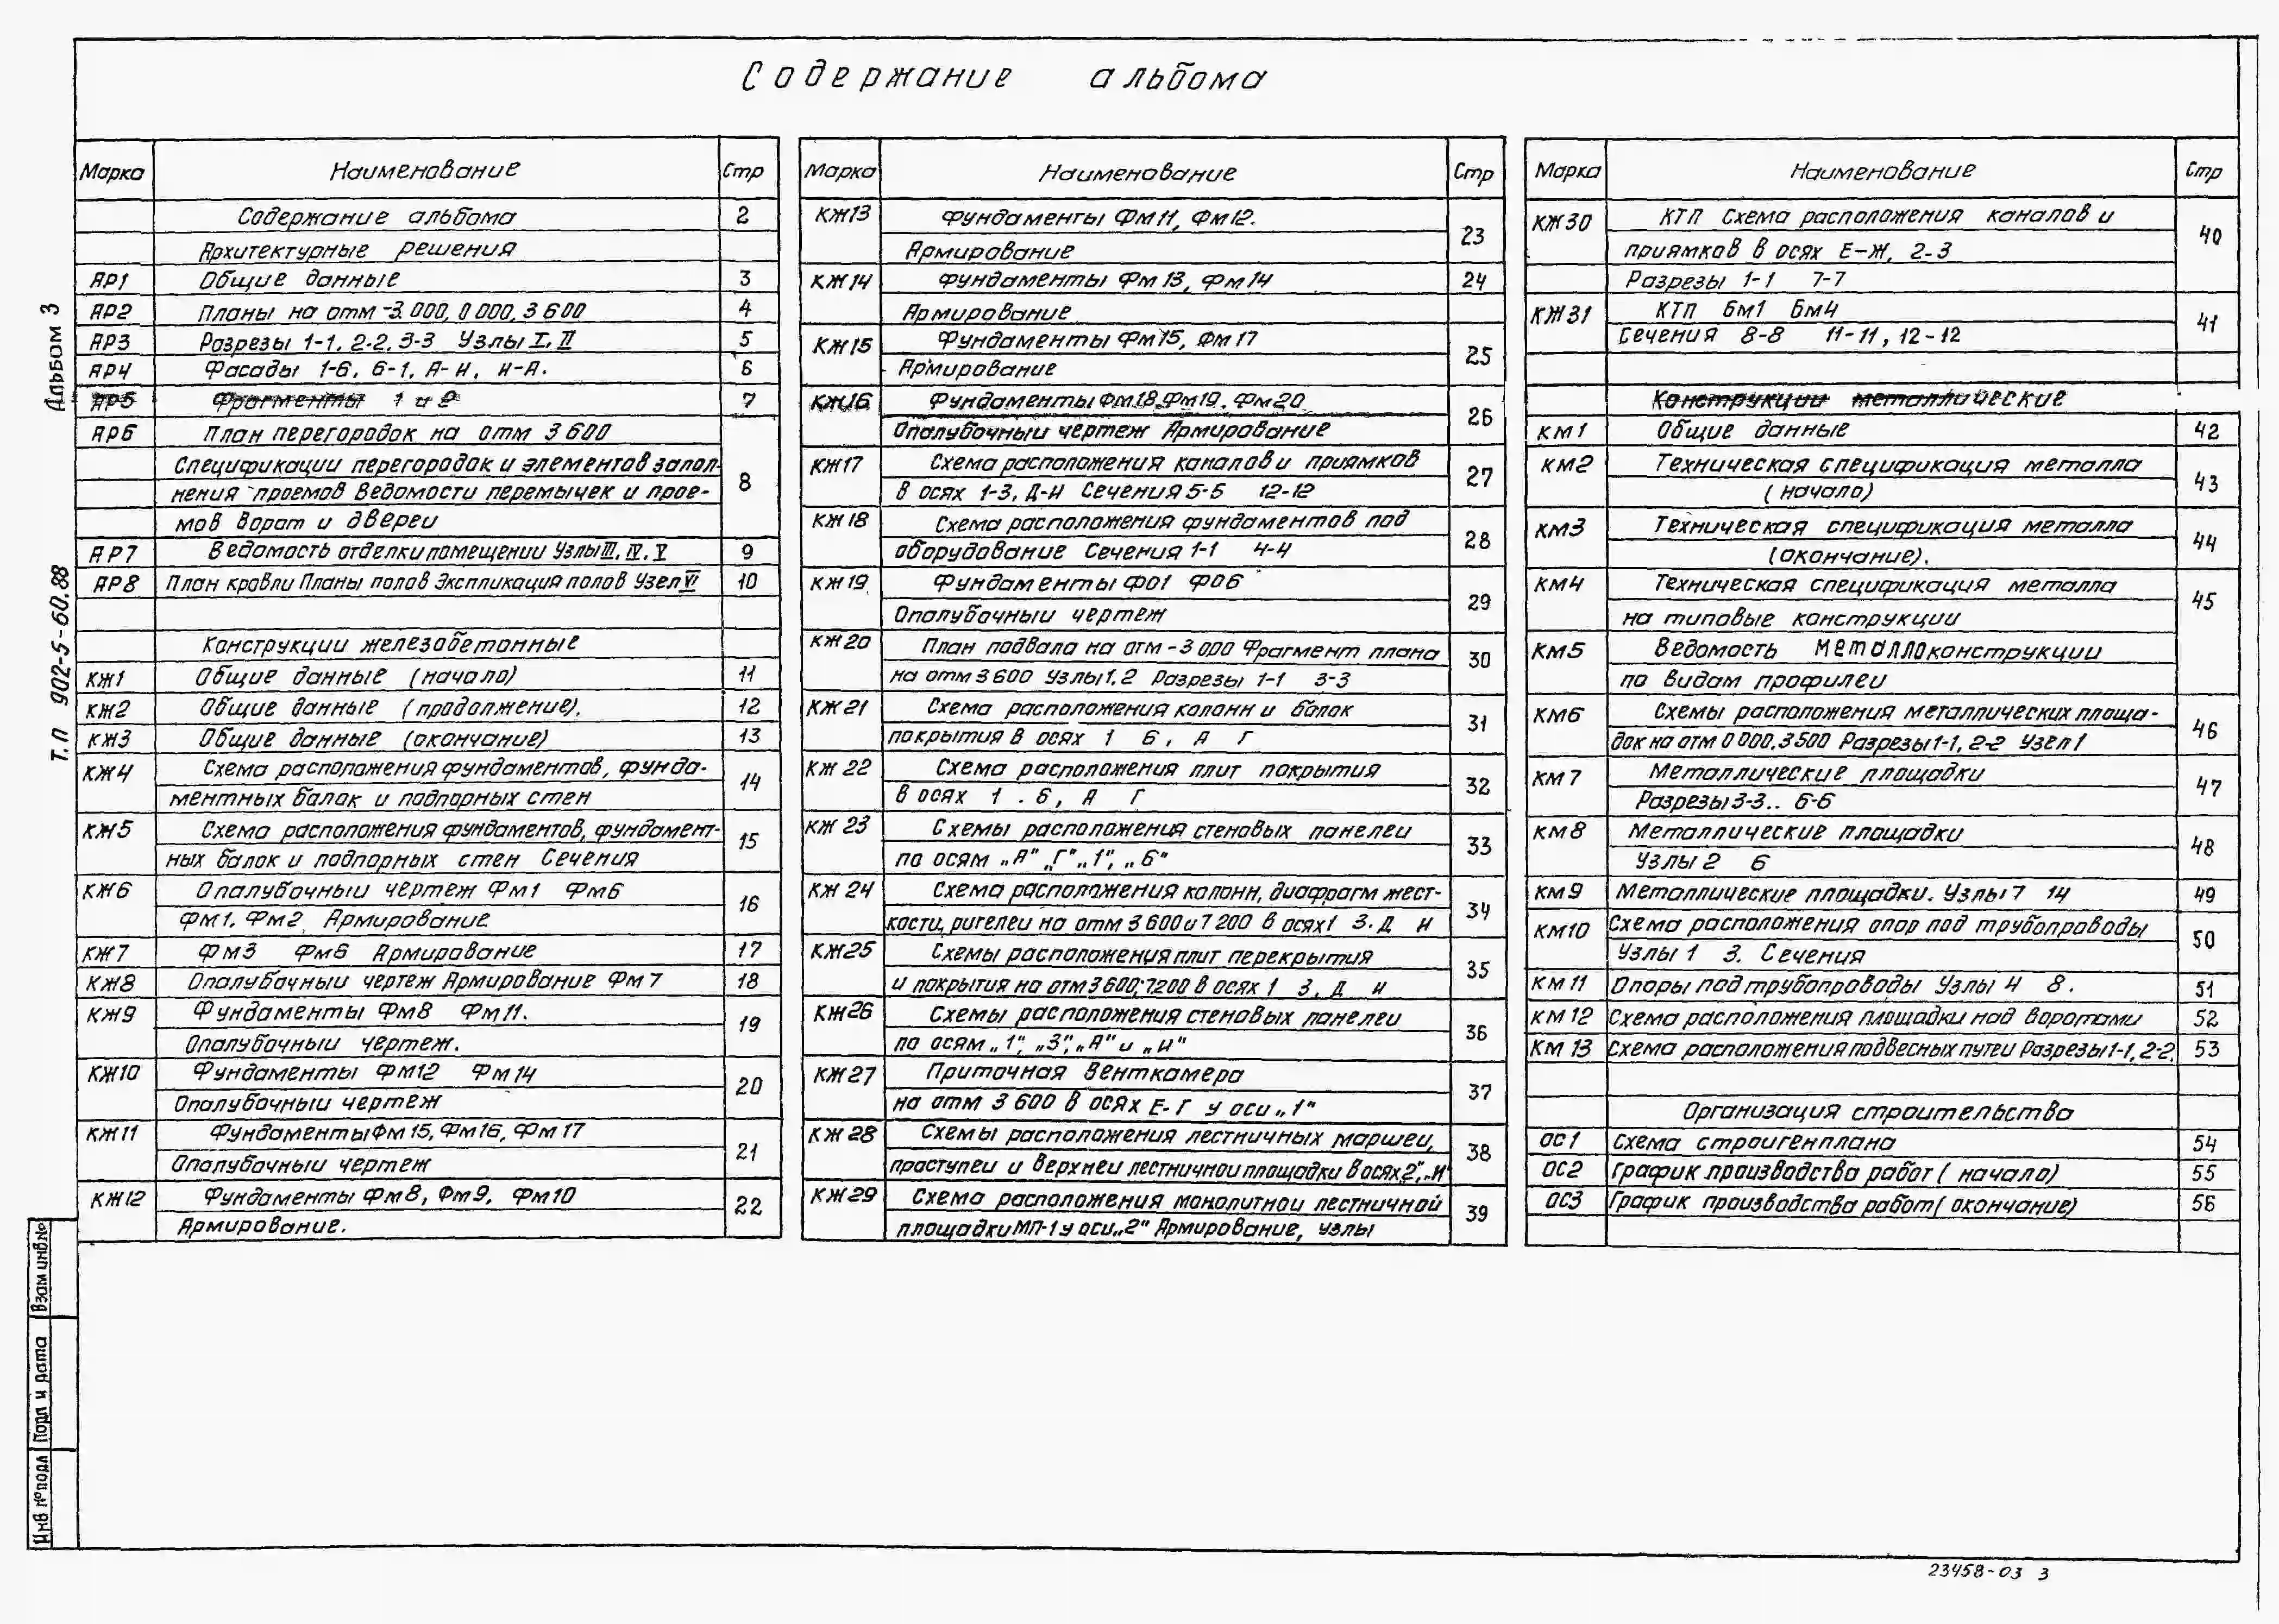 Содержание альбома
Альбом 3
Т.п 902-5-60.88
Марка Наименование Стр
Содержание альбома 2
Архитектурные решения
АР1 Общие данные 3
АР2 Планы на отм -3.000, 0 000, 3 600 4
АР3 Разрезы 1-1, 2-2, 3-3 Узлы I, II 5
АР4 Фасады 1-6, 6-1, А-И, И-А. 6
АР5 Фрагменты 1 и 2 7
АР6 План перегородок на отм 3 600
Спецификации перегородок и элементов запол-
нения проемов Ведомости перемычек и прое- 8
мов ворот и двереи
АР7 Ведомость отделки помещении Узлы III, IV, V 9
АР8 План кровли Планы полов Экспликация полов Узел VI 10
Конструкции железобетонные
КЖ1 Общие данные (начало) 11
КЖ2 Общие данные (продолжение). 12
КЖ3 Общие данные (окончание) 13
КЖ4 Схема расположения фундаментов, фунда- 14
ментных балок и подпорных стен
КЖ5 Схема расположения фундаментов, фундамент- 15
ных балок и подпорных стен Сечения
КЖ6 Опалубочныи чертеж Фм1 Фм6 16
Фм1, Фм2, Армирование
КЖ7 Фм3 Фм6 Армирование 17
КЖ8 Опалубочныи чертеж Армирование Фм 7 18
КЖ9 Фундаменты Фм8 Фм11. 19
Опалубочныи чертеж.
КЖ10 Фундаменты Фм12 Фм14 20
Опалубочныи чертеж
КЖ11 Фундаменты Фм 15, Фм16, Фм 17 21
Опалубочныи чертеж
КЖ12 Фундаменты Фм8, Фм9, Фм10 22
Армирование.
Марка Наименование Стр
КЖ13 Фундаменты Фм11, Фм12. 23
Армирование
КЖ14 Фундаменты Фм 13, Фм14 24
Армирование
КЖ15 Фундаменты Фм15, Фм 17 25
Армирование
КЖ16 Фундаменты Фм18, Фм19, Фм20 26
Опалубочныи чертеж Армирование
КЖ17 Схема расположения каналов и приямков 27
в осях 1-3, Д-И Сечения 5-5 12-12
КЖ18 Схема расположения фундаментов под 28
оборудование Сечения 1-1 4-4
КЖ19 Фундаменты ФО1 ФО6 29
Опалубочныи чертеж
КЖ20 План подвала на отм -3 000 Фрагмент плана 30
на отм 3 600 Узлы 1, 2 Разрезы 1-1 3-3
КЖ21 Схема расположения колонн и балок 31
покрытия в осях 1 6, А Г
КЖ 22 Схема расположения плит покрытия 32
в осях 1 . 6, А Г
КЖ 23 Схемы расположения стеновых панелеи 33
по осям „А" „Г" „1", „6"
КЖ 24 Схема расположения колонн, диафрагм жест- 34
кости, ригелеи на отм 3 600 и 7 200 в осях 1 3. Д И
КЖ25 Схемы расположения плит перекрытия 35
и покрытия на отм 3 600; 7.200 в осях 1 3, Д И
КЖ26 Схемы расположения стеновых панелеи 36
по осям „1", „3", „А" и „И"
КЖ27 Приточная венткамера 37
на отм 3 600 в осях Е-Г у оси „1"
КЖ 28 Схемы расположения лестничных маршеи, 38
проступеи и верхнеи лестничнои площадки в осях „2", „И"
КЖ29 Схема расположения монолитнои лестничной 39
площадки МП-1 у оси „2" Армирование, узлы
Марка Наименование Стр
КЖ30 КТП Схема расположения каналов и 40
приямков в осях Е-Ж, 2-3
Разрезы 1-1 7-7
КЖ31 КТП Бм1 Бм4 41
Сечения 8-8 11-11, 12-12
Конструкции металлические
КМ1 Общие данные 42
КМ2 Техническая спецификация металла 43
(начало)
КМ3 Техническая спецификация металла 44
(окончание).
КМ4 Техническая спецификация металла 45
на типовые конструкции
КМ5 Ведомость металлоконструкции
по видам профилеи
КМ6 Схемы расположения металлических площа- 46
док на отм 0 000, 3 500 Разрезы 1-1, 2-2 Узел 1
КМ 7 Металлические площадки 47
Разрезы 3-3.. 6-6
КМ8 Металлические площадки 48
Узлы 2 6
КМ9 Металлические площадки. Узлы 7 14 49
КМ10 Схема расположения опор под трубопроводы 50
Узлы 1 3. Сечения
КМ 11 Опоры под трубопроводы Узлы 4 8. 51
КМ 12 Схема расположения площадки над воротами 52
КМ 13 Схема расположения подвесных путеи Разрезы 1-1, 2-2. 53
Организация строительства
ОС1 Схема строигенплана 54
ОС2 График производства работ (начало) 55
ОС3 График производства работ (окончание) 56
Взам инв.№
Подп и дата
Инв № подл
23458-03 3